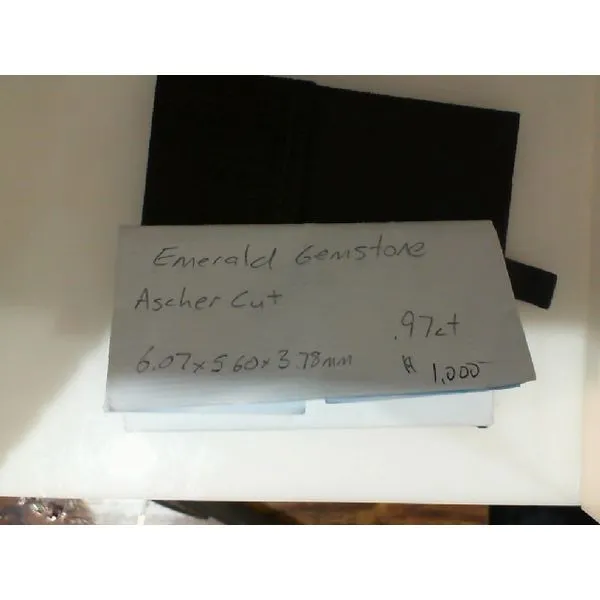 Emerald Gemstone
Ascher Cut
.97ct
6.07x5.60x3.78mm
$ 1,000